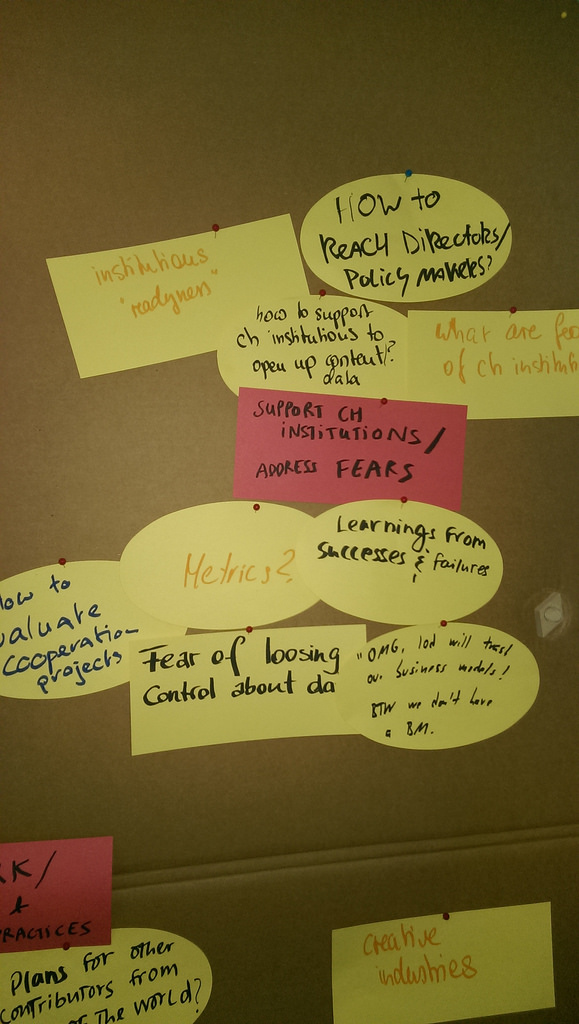 HOW to
REACH DIRECTORS/
POLICY MAKERS?
institutions
"readyness"
how to support
ch institutions to
open up content/?
data
what are
of ch
SUPPORT CH
INSTITUTIONS/
ADDRESS FEARS
Metrics?
Learnings from
successes & failures
!
to
cooperation
projects
Fear of loosing
Control about da
"OMG, lod will trash
our business models!
BTW we don't have
a BM.
PRACTICES
Plans for other
contributors from
THE WORLD?
creative
industries